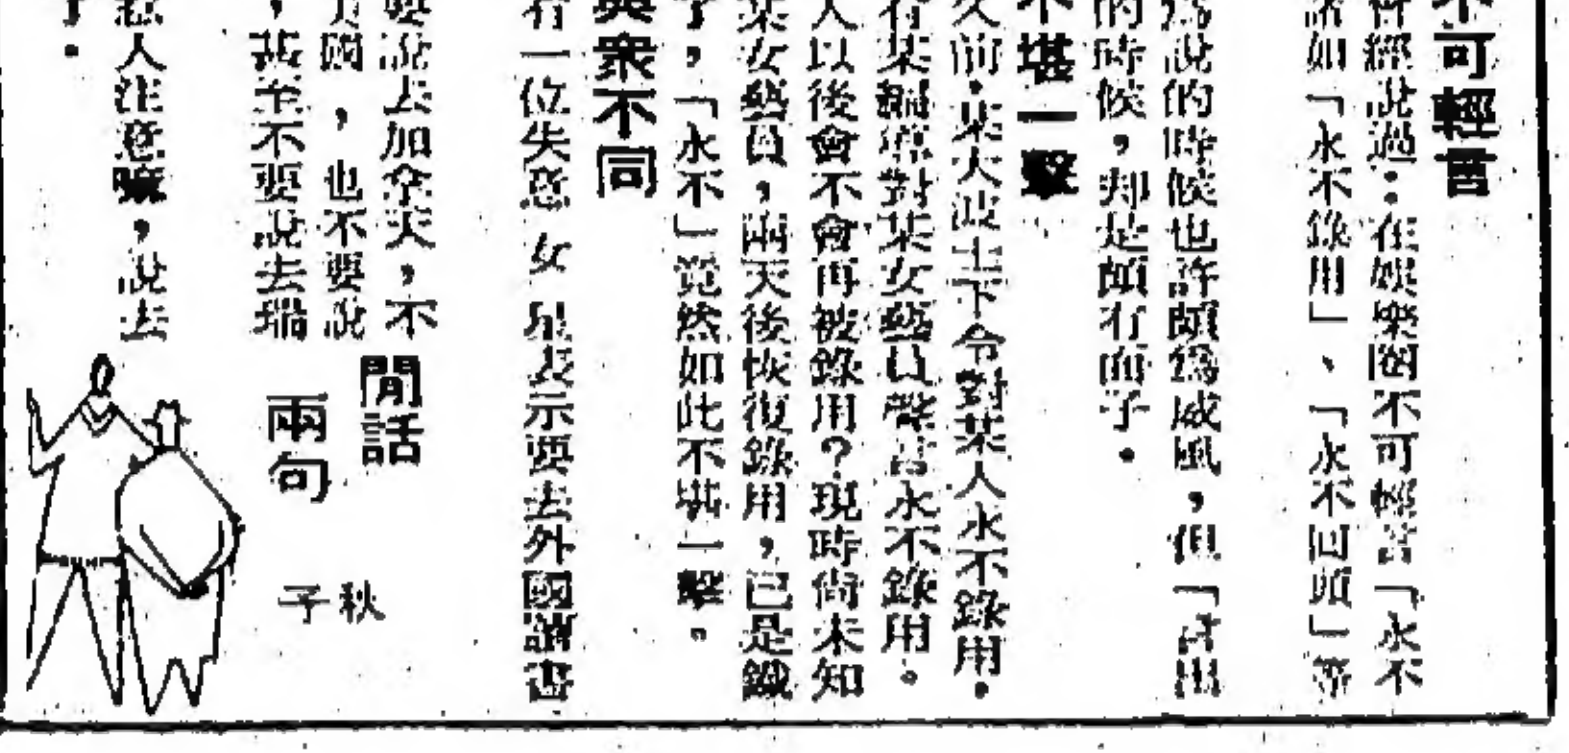 不可輕言
曾經說過：在娛樂圈不可輕言「永不
諸如「永不錄用」、「永不回頭」等
為說的時候也許頗為威風，但「言出
的時候，却是頗有面子。
不堪一擊
久前，某大波士下令對某人永不錄用。
有某編導對某女藝員聲言永不錄用。
人以後會不會再被錄用？現時尚未知
某女藝員，兩天後恢復錄用，已是鐵
了，「永不」竟然如此不堪一擊。
與衆不同
有一位失意女星表示要去外國讀書
要說去加拿大，不
國，也不要說
，甚至不要說去瑞
惹人注意嘛，說去
了。
閒話
兩句
秋
子